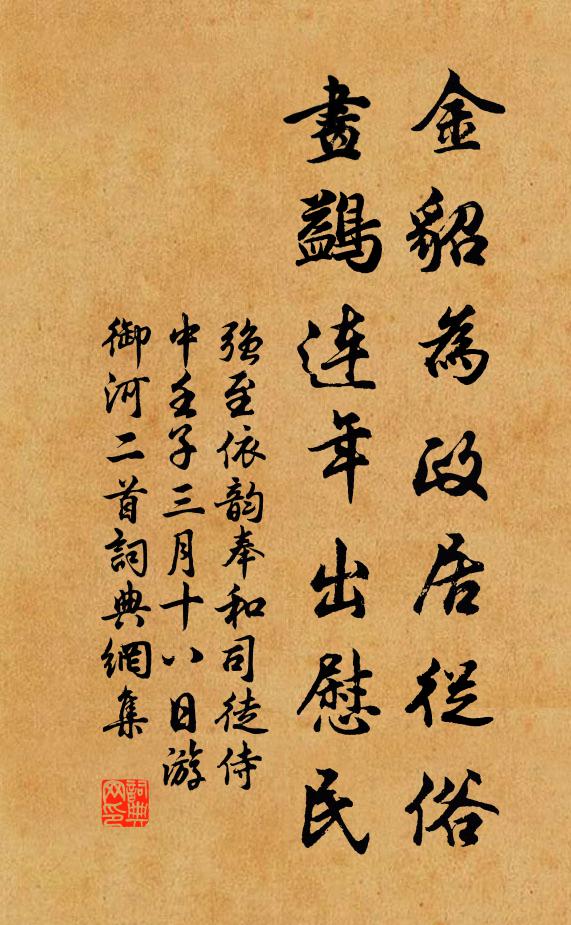 金貂為政居從俗
畫鷁連年出慰民
強至依韵奉和司徒侍
中壬子三月十八日游
御河二首詞典網集
詞典网印